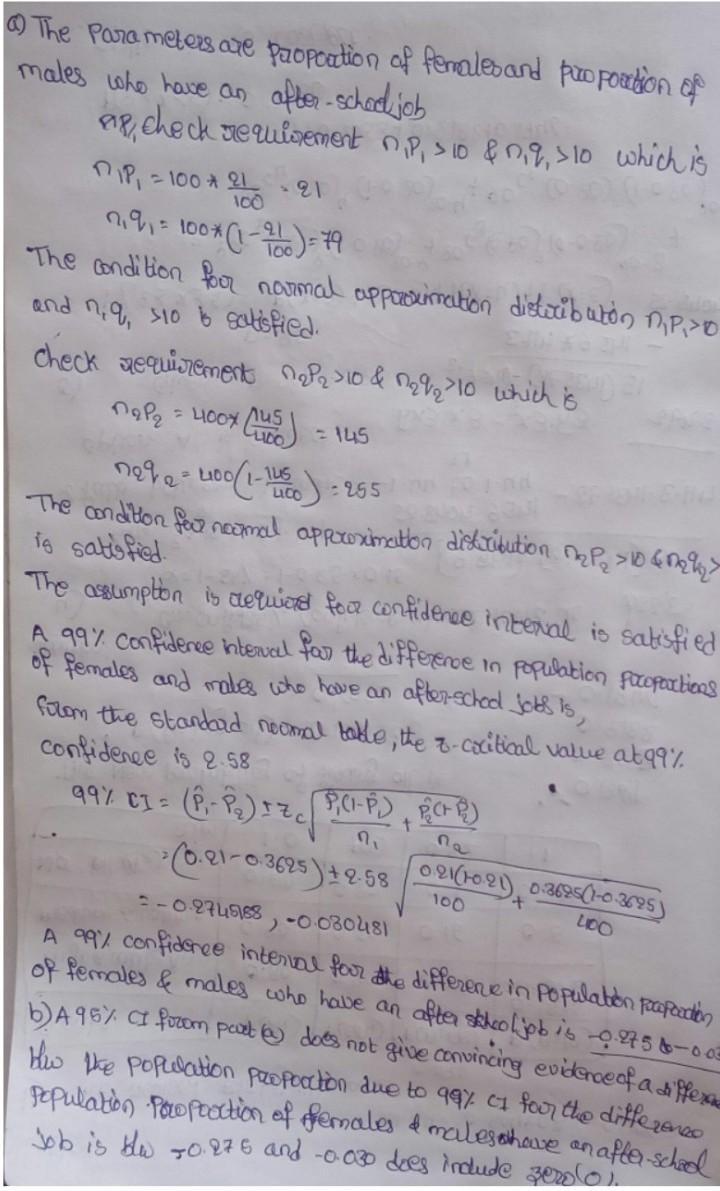 a) The Parameters are proportion of females and proportion of
males who have an after-school job
check requirement n₁P₁ >10 & n₁q₁ >10 which is
n₁P₁ = 100 * 21/100 = 21
n₁q₁ = 100*(1-21/100) = 79
The condition for normal approximation distribution n₁P₁>0
and n₁q₁ >10 is satisfied.
Check requirements n₂P₂ >10 & n₂q₂ >10 which is
n₂P₂ = 400x(145/400) = 145
n₂q₂ = 400(1-145/400) = 255
The condition for normal approximation distribution n₂P₂ >10 & n₂q₂>
is satisfied.
The assumption is required for confidence interval is satisfied
A 99% confidence interval for the difference in population proportions
of females and males who have an after-school jobs is,
from the standard normal table, the z-critical value at 99%
confidence is 2.58
99% CI = (p̂₁-p̂₂) ± zc √(p̂₁(1-p̂₁)/n₁ + p̂₂(1-p̂₂)/n₂)
= (0.21-0.3625) ± 2.58 √(0.21(1-0.21)/100 + 0.3625(1-0.3625)/400)
= , -0.030481
A 99% confidence interval for the difference in population proportion
of females & males who have an after school job is -0.275 to -0.03
b) A 95% CI from part (a) does not give convincing evidence of a differen
b/w the population proportion due to 99% CI for the difference
population proportion of females & males have an after-school
job is b/w -0.275 and -0.030 does include zero(0).